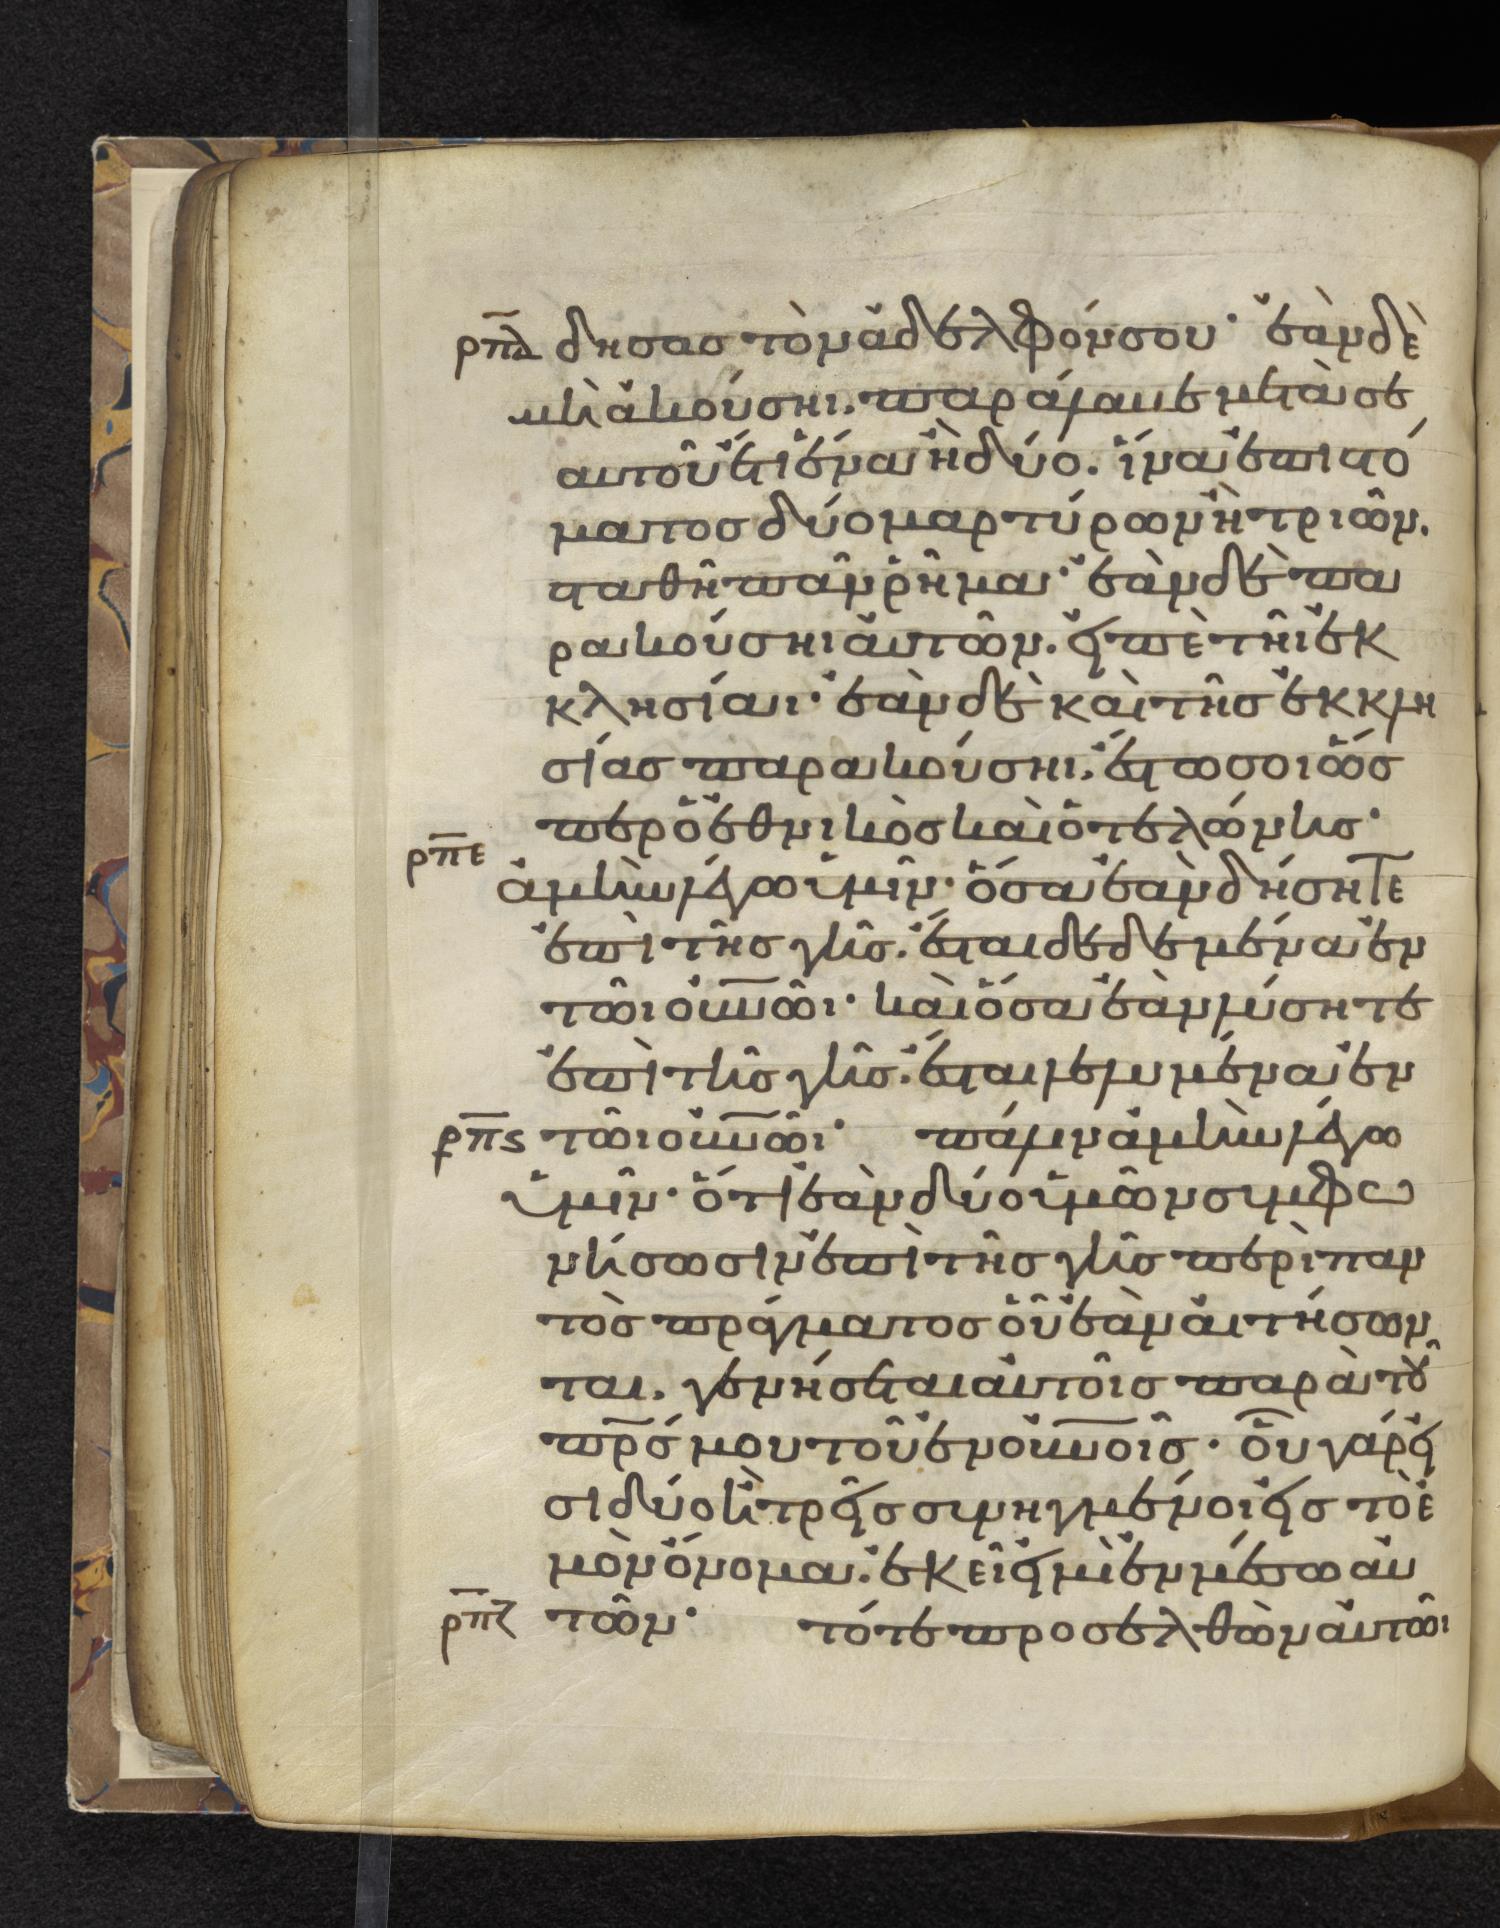 ρπδ δησας τὸν ἀδελφόν σου· ἐὰν δὲ
μὴ ἀκούσηι. παράλαβε μετὰ σε
αυτοῦ ἔτι ἕνα ἢ δύο. ἵνα ἐπὶ στό
ματος δύο μαρτύρων ἢ τριῶν.
σταθῆ πᾶν ῥῆμα· ἐὰν δὲ πα
ρακούσηι ἀυτῶν. ἐιπὲ τῆι ἐκ
κλησίαι· ἐὰν δὲ κὰι τῆς ἐκκλη
σίας παρακούσηι. ἔστω σοι ὥς
περ ὁ ἐθνικὸς κὰι ὁ τελώνης·
ρπε
ἀμὴν λέγω ὑμῖν· ὅσα ἐὰν δήσητε
ἐπὶ τῆς γῆς. ἔσται δεδεμένα ἐν
τῶι οὐνῶι· κὰι ὅσα ἐὰν λύσητε
ἐπὶ τῆς γῆς. ἔσται λελυμένα ἐν
ρπς τῶι οὐνῶι· πάλιν ἀμὴν λέγω
ὑμῖν· ὅτι ἐὰν δύο ὑμῶν συμφω
νήσωσιν ἐπὶ τῆς γῆς περὶ παν
τὸς πράγματος οὗ ἐὰν ἀιτήσων
ται. γενήσεται ἀυτοῖς παρὰ τοῦ
πρς μου τοῦ ἐν οὐνοῖς· οὗ γάρ ἐι
σι δύο ἢ τρεῖς συνηγμένοι ἐις τὸ ἐ
μὸν ὄνομα. ἐκεῖ ἐιμὶ ἐν μέσω ἀυ
ρπζ τῶν· τότε προσελθὼν ἀυτῶι